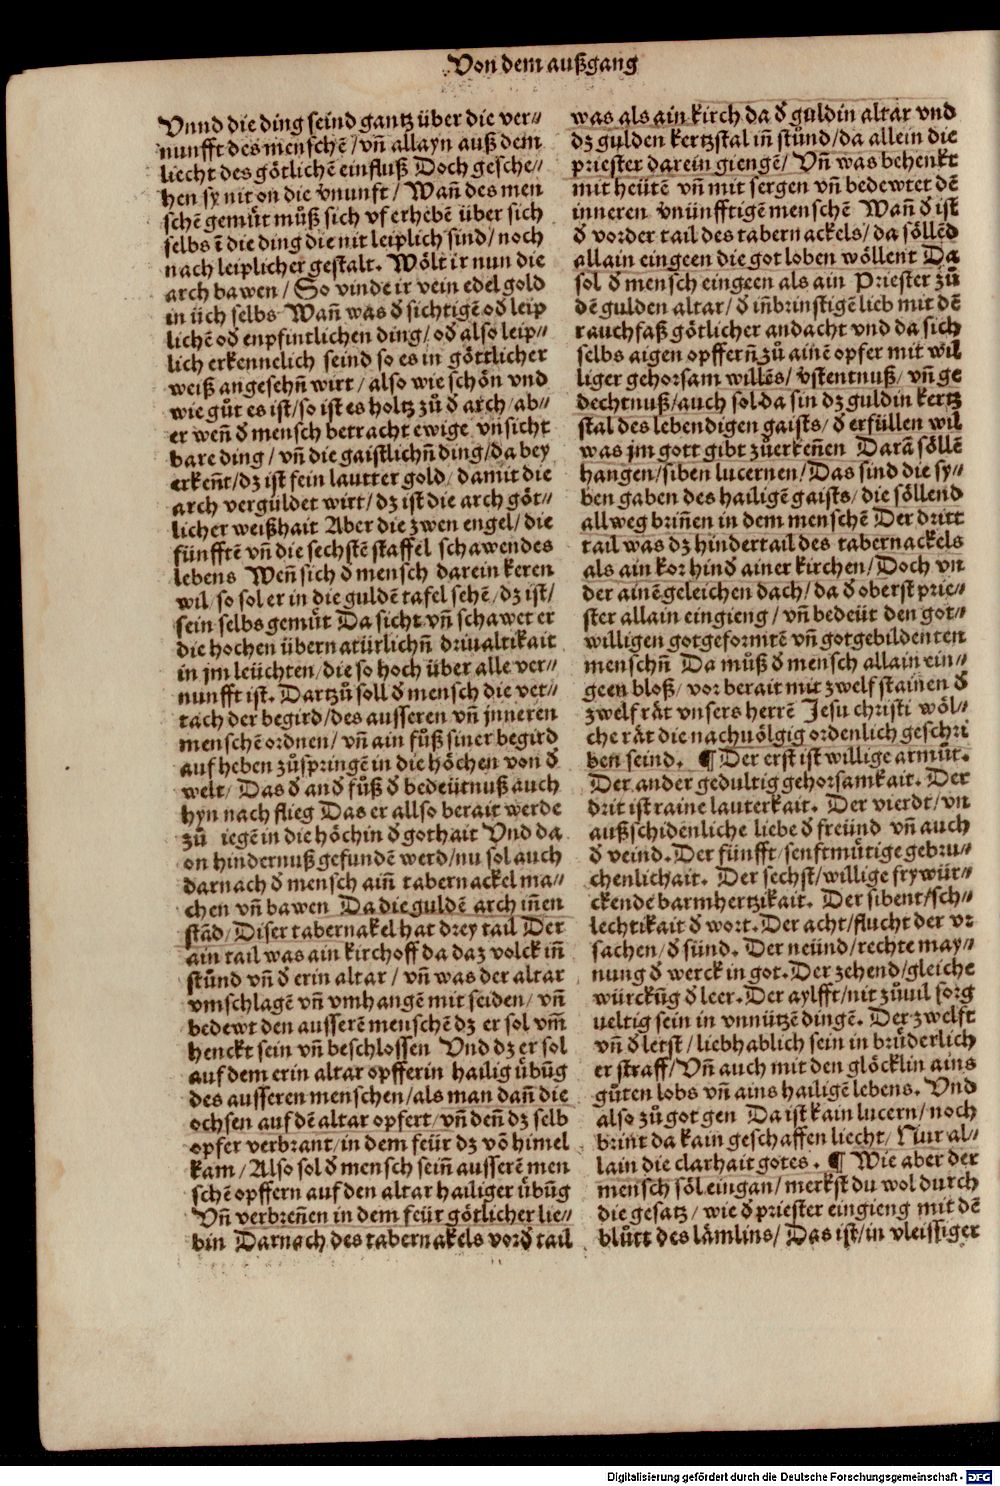 Von dem außgang
Vnnd die ding seind gantz über die ver⸗
nunfft des menschē/vñ allayn auß dem
liecht des götlichē einfluß Doch gesche⸗
hen sy nit on die vnunft/ Wañ des men
schē gemüt můß sich vf erhebē über sich
selbs ē die ding die nit leiplich sind/noch
nach leiplicher gestalt. Wölt ir nun die
arch bawen/ So vinde ir vein edel gold
in üch selbs Wañ was đ sichtigē ođ leip
lichē ođ enpfintlichen ding/ođ also leip⸗
lich erkennelich seind so es in göttlicher
weiß angesehñ wirt/also wie schön vnd
wie gůt es ist/so ist es holtz zů đ arch/ab⸗
er weñ đ mensch betracht ewige vnsicht
bare ding/vñ die gaistlichñ ding/da bey
erkeñt/dz ist fein lautter gold/damit die
arch vergüldet wirt/dz ist die arch göt⸗
licher weißhait Aber die zwen engel/die
fünfftē vñ die sechstē staffel schawendes
lebens Weñ sich đ mensch darein keren
wil/so sol er in die guldē tafel sehē/dz ist/
sein selbs gemüt Da sicht vñ schawet er
die hochen übernatürlichñ driualtikait
in jm leüchten/die so hoch über alle ver⸗
nunfft ist. Dartzů soll đ mensch die vet⸗
tach der begird/des ausseren vñ jnneren
menschē ordnen/vñ ain fůß siner begird
auf heben zůspringē in die höchen von đ
welt/ Das đ anđ fůß đ bedeütnuß auch
hyn nach flieg Das er allso berait werde
zů iegē in die höchin đ gothait Vnd da
on hindernuß gefundē werd/nu sol auch
darnach đ mensch aiñ tabernackel ma⸗
chen vñ bawen Da die guldē arch iñen
stād/Diser tabernakel hat drey tail Der
ain tail was ain kirchoff da daz volck iñ
stůnd vñ đ erin altar/vñ was der altar
vmschlagē vñ vmhangē mit seiden/vñ
bedewt den ausserē menschē dz er sol vm̄
henckt sein vñ beschlossen Vnd dz er sol
auf dem erin altar opfferin hailig übūg
des ausseren menschen/als man dañ die
ochsen auf dē altar opfert/vñ deñ dz selb
opfer verbrant/in dem feür dz vō himel
kam/Also sol đ mensch seiñ ausserē men
schē opffern auf den altar hailiger übūg
Vñ verbreñen in dem feür götlicher lie⸗
bin Darnach des tabernakels vorđ tail
was als ain kirch da đ guldin altar vnd
dz gulden kertzstal iñ stůnd/da allein die
priester darein giengē/Vñ was behenkt
mit heütē vñ mit sergen vñ bedewtet dē
inneren vnünfftigē menschē Wañ đ ist
đ vorder tail des tabernackels/da söllēd
allain eingeen die got loben wöllent Da
sol đ mensch eingeen als ain Priester zů
dē gulden altar/đ iñbrinstigē lieb mit dē
rauchfaß götlicher andacht vnd da sich
selbs aigen opffern̄ zů ainē opfer mit wil
liger gehorsam willēs/vstentnuß/vñ ge
dechtnuß/auch sol da sin dz guldin kertz
stal des lebendigen gaists/đ erfüllen wil
was jm gott gibt zůerkeñen Darā söllē
hangen/siben lucernen/Das sind die sy⸗
ben gaben des hailigē gaists/die söllend
allweg briñen in dem menschē Der dritt
tail was dz hindertail des tabernackels
als ain kor hinđ ainer kirchen/Doch vn
der ainē geleichen dach/da đ oberst prie⸗
ster allain eingieng/vñ bedeüt den got⸗
willigen gotgeformtē vñ gotgebildenten
menschñ Da můß đ mensch allain ein⸗
geen bloß/vor berait mit zwelf stainen đ
zwelf rät vnsers herrē Jesu christi wöl⸗
che rät die nachuölgig ordenlich geschri
ben seind. ¶ Der erst ist willige armůt.
Der ander gedultig gehorsamkait. Der
drit ist raine lauterkait. Der vierdt/vn
außschidēnliche liebe đ freünd vñ auch
đ veind. Der fünfft/senftmütige gebru⸗
chenlichait. Der sechst/willige fry wür⸗
ckende barmhertzikait. Der sibent/sch⸗
lechtikait đ wort. Der acht/flucht der vr
sachen/đ sünd. Der neünd/rechte may⸗
nung đ werck in got. Der zehend/gleiche
würckūg đ leer. Der aylfft/nit zůuil sorg
ueltig sein in vnnützē dingē. Der zwelft
vñ đ letst/liebhablich sein in brüderlich
er straff/Vñ auch mit den glöcklin ains
gůten lobs vñ ains hailigē lebens. Vnd
also zů got gen Da ist kain lucern/noch
brint da kain geschaffen liecht/Nur al⸗
lain die clarhait gotes. ¶ Wie aber der
mensch söl eingan/merkst du wol durch
die gesatz/wie đ priester eingieng mit dē
blůtt des lämlins/Das ist/in vleissiger
Digitalisierung gefördert durch die Deutsche Forschungsgemeinschaft - DFG